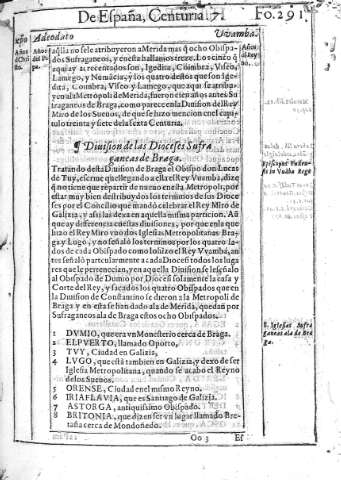 De España, Centuria 7. Fo. 291.
Adeodato Vvamba.
aq̃lla no se le atribuyeron a Merida mas q̃ ocho Obispados
Sufraganeos, y en esta hallamos treze. Los cinco q̃
aqui ay acrecentados son, Igedita, Coimbra, Viseo,
Lamego, y Numãcia, y los quatro destos que son Igedita,
Coimbra, Viseo y Lamego, que aqui se atribuyen
a la Metropoli de Merida, fueron cien años antes Sufraganeos
de Braga, como parece en la Diuision del Rey
Miro de los Sueuos, de que se hizo mencion en el capitulo
treinta y siete de la sexta Centuria.
¶ Diuision de las Dioceses Sufraganeas
de Braga.
Tratando desta Diuision de Braga el Obispo don Lucas
de Tuy, escriue que llegando a ella el Rey Vvamba, dize
q̃ no tiene que repartir de nueuo en esta Metropoli, por
estar muy bien destribuydos los terminos de sus Dioceses
por el Concilio que mandò celebrar el Rey Miro de
Galizia, y assi las dexa en aquella misma particion. Aũ
que ay diferencia en estas diuisiones, por que en la que
hizo el Rey Miro vuo dos Iglesias Metropolitanas Braga
y Lugo, y no señalò los terminos por los quatro lados
de cada Obispado como los hizo el Rey Vvamba, antes
señalò particularmente a cada Diocesi todos los lugares
que le pertenecian, y en aquella Diuision se le señalò
al Obispado de Dumio por Diocesi solamente la casa y
Corte del Rey, y sacados los quatro Obispados que en
la Diuision de Constantino se dieron a la Metropoli de
Braga y en esta se han dado a la de Merida, quedan por
Sufraganeos a la de Braga estos ocho Obispados.
8. Iglesias Sufraganeas
a la de Braga.
1 DVMIO, que era vn Monesterio cerca de Braga.
2 EL PVERTO, llamado Oporto.
3 TVY, Ciudad en Galizia.
4 LVGO, que està tambien en Galizia, y dexo de ser
Iglesia Metropolitana, quando se acabo el Reyno
de los Sueuos.
5 ORENSE, Ciudad en el mismo Reyno.
6 IRIA FLAVIA, que es Santiago de Galizia.
7 ASTORGA, antiquissimo Obispado.
8 BRITONIA, que dizen ser vn lugar llamado Bretaña
cerca de Mondoñedo.
Oo 3 Es